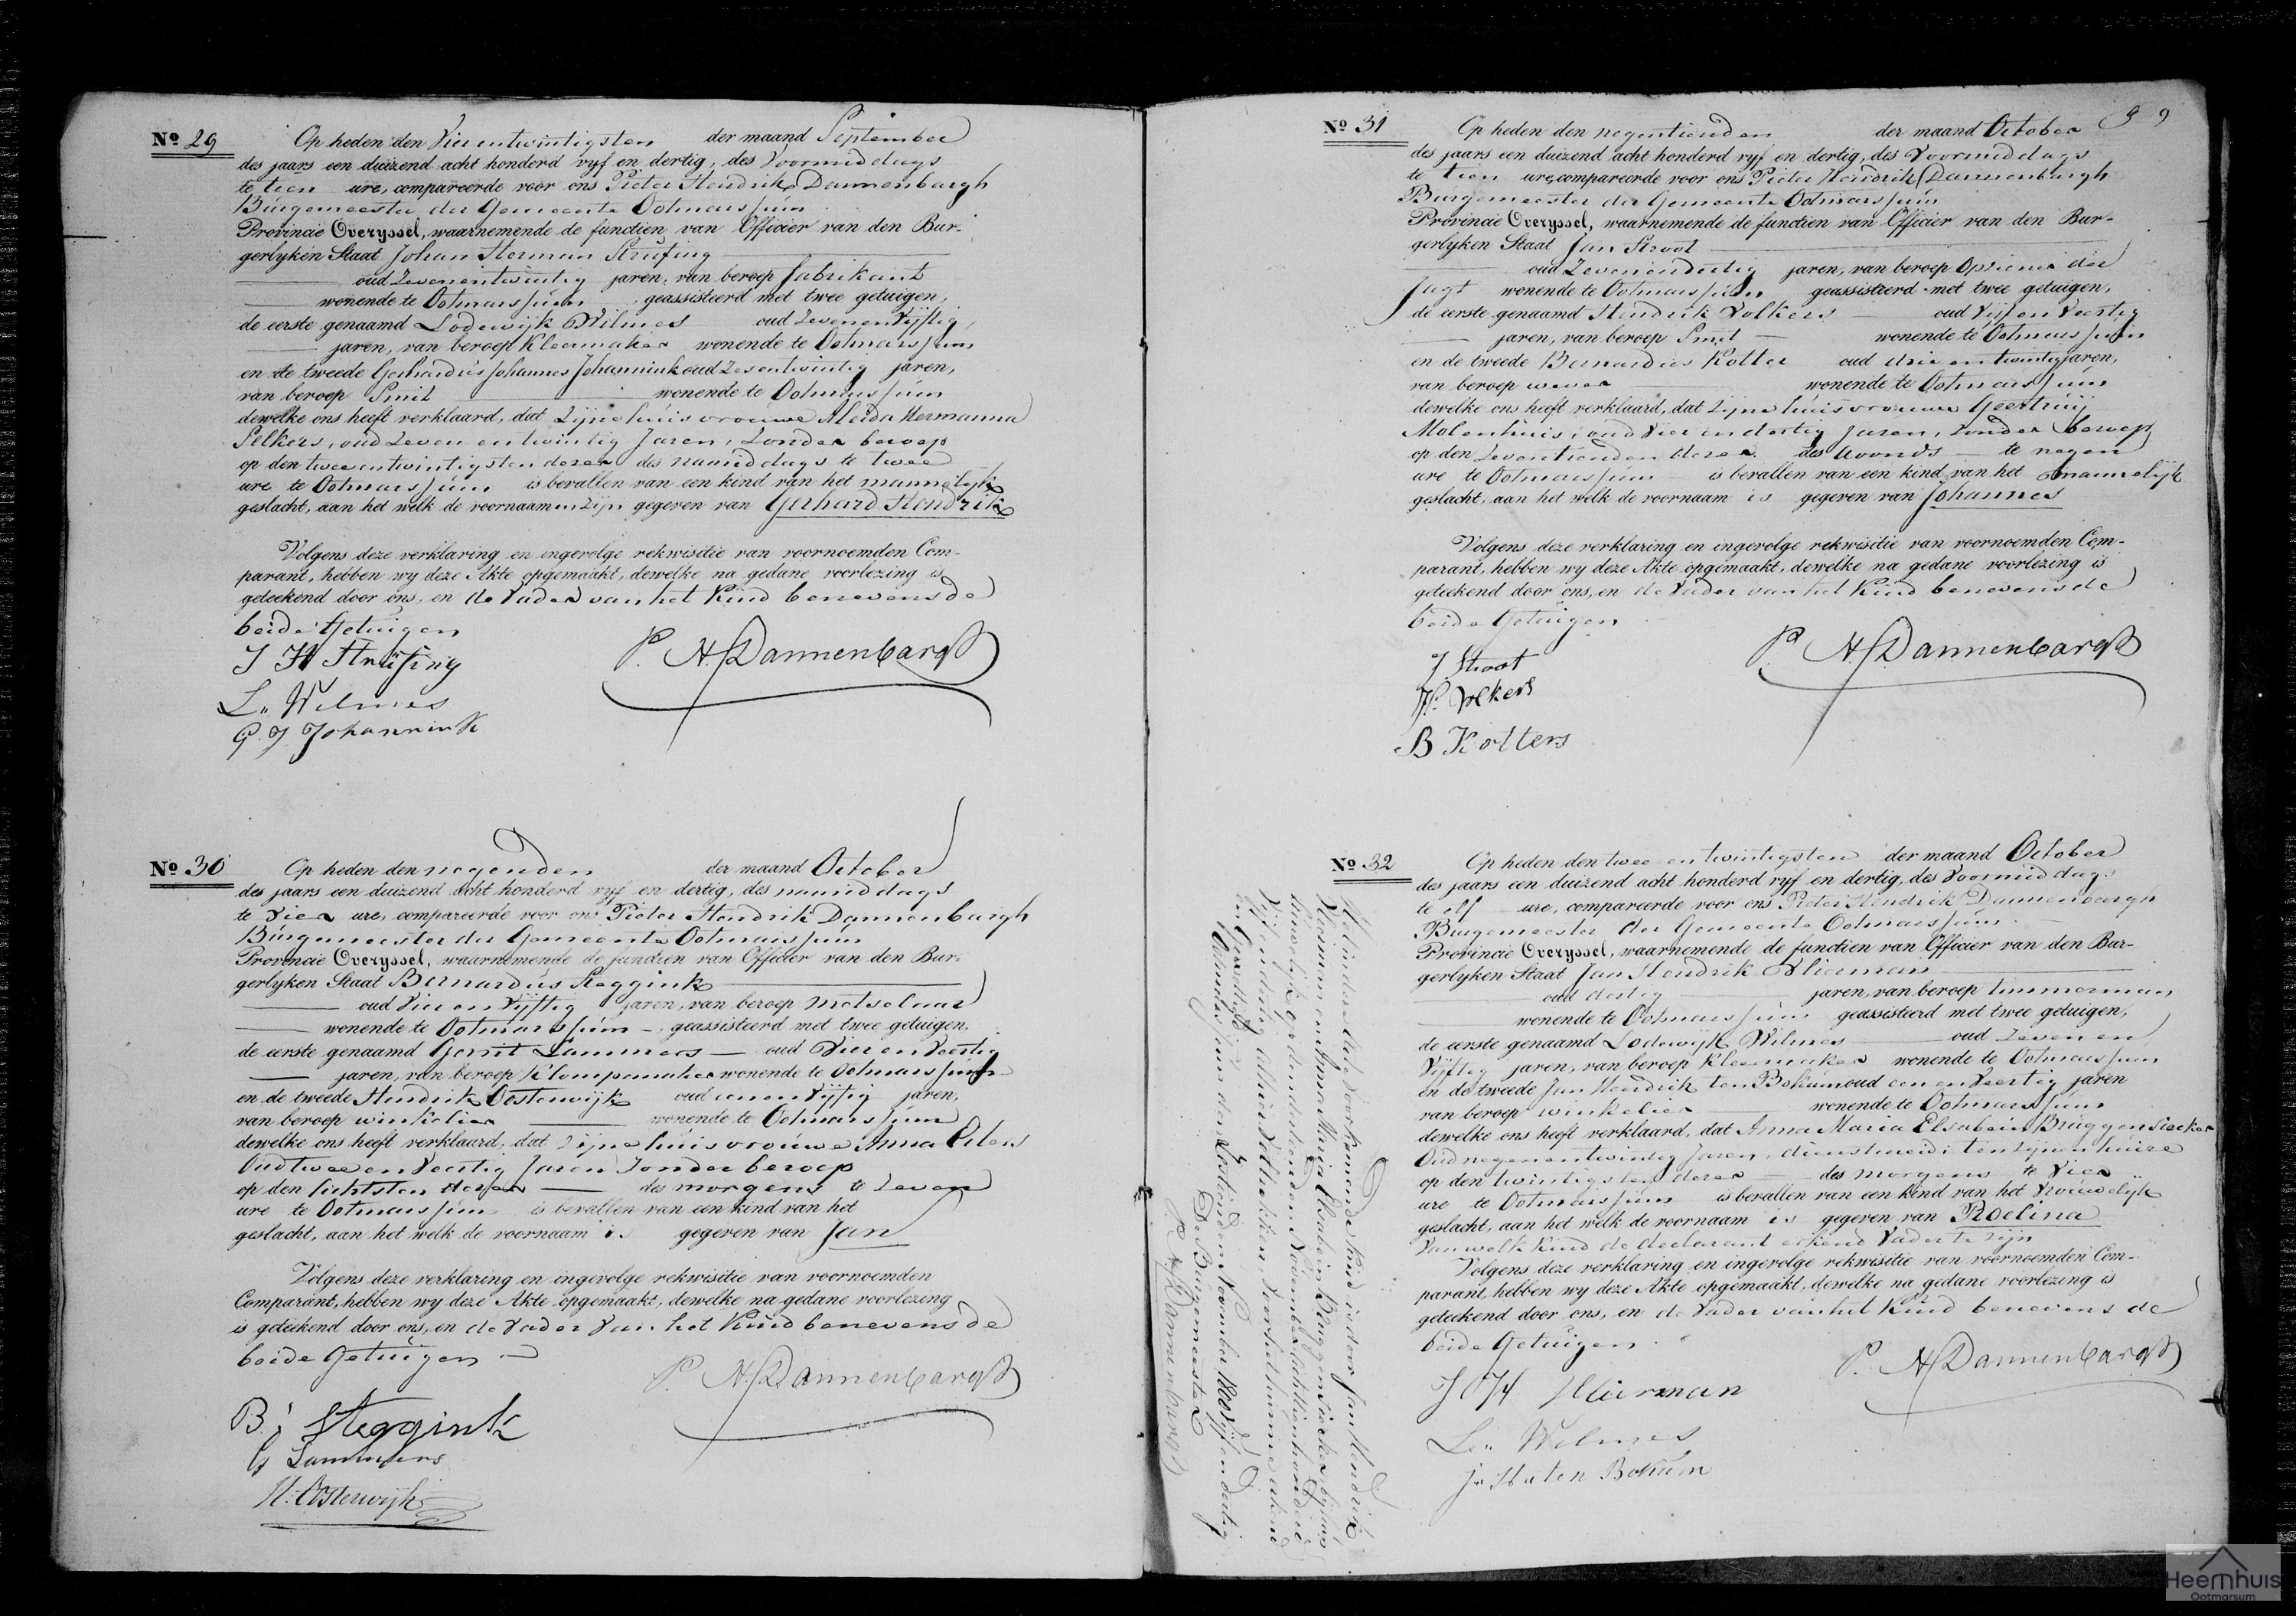 Nº 29
Op heden den Vier entwintigsten der maand September
des jaars een duizend acht honderd vyf en dertig, des Voormiddags
te tien ure, compareerde voor ons Pieter Hendrik Dannenbargh
Burgemeester der Gemeente Ootmarssum
Provincie Overyssel, waarnemende de functien van Officier van den Bur-
gerlyken Staat Johan Herman Strüfing
oud Zevenentwintig jaren, van beroep fabrikant
wonende te Ootmarssum geassisteerd met twee getuigen,
de eerste genaamd Lodewijk Wilmes oud Zevenenvijftig
jaren, van beroep Kleermaker wonende te Ootmarssum
en de tweede Gerhardus Johannes Johannink oud Zesentwintig jaren,
van beroep Smit wonende te Ootmarssum
dewelke ons heeft verklaard, dat Zijne huisvrouwe Aleida Hermanna
Selkers, oud Zeven entwintig Jaren, Zonder beroep
op den twee entwintigsten dezer des namiddags te twee
ure te Ootmarssum is bevallen van een kind van het mannelijk
geslacht, aan het welk de voornaamen zijn gegeven van Gerhard Hendrik
Volgens deze verklaring en ingevolge rekwisitie van voornoemden Com-
parant, hebben wy deze Akte opgemaakt, dewelke na gedane voorlezing is
geteekend door ons, en de Vader van het Kind benevens de
beide Getuigen
J H Strüfing
P. H. Dannenbargh
L. Wilmes
G. J. Johannink
Nº 30
Op heden den negenden der maand October
des jaars een duizend acht honderd vyf en dertig, des namiddags
te Vier ure, compareerde voor ons Pieter Hendrik Dannenbargh
Burgemeester der Gemeente Ootmarssum
Provincie Overyssel, waarnemende de functien van Officier van den Bur-
gerlyken Staat Bernardus Steggink
oud Vier en Vijftig jaren, van beroep Metselaar
wonende te Ootmarssum geassisteerd met twee getuigen,
de eerste genaamd Gerrit Lammers oud Vier en Veertig
jaren, van beroep Klompemaker wonende te Ootmarssum
en de tweede Hendrik Oosterwijk oud eenenVijftig jaren,
van beroep winkelier wonende te Ootmarssum
dewelke ons heeft verklaard, dat Zijne huisvrouwe Anna
Oud twee en Veertig Jaren Zonder beroep
op den achtsten dezer des morgens te Zeven
ure te Ootmarssum is bevallen van een kind van het
geslacht, aan het welk de voornaam is gegeven van Jan
Volgens deze verklaring en ingevolge rekwisitie van voornoemden
Comparant, hebben wy deze Akte opgemaakt, dewelke na gedane voorlezing
is geteekend door ons, en de Vader Van het Kind benevens de
beide Getuigen
P. H. Dannenbargh
B. Steggink
G Lammers
H. Oosterwijk
9 9
Nº 31
Op heden den negentienden der maand October
des jaars een duizend acht honderd vyf en dertig, des Voormiddags
te tien ure, compareerde voor ons Pieter Hendrik Dannenbargh
Burgemeester der Gemeente Ootmarssum
Provincie Overyssel, waarnemende de functien van Officier van den Bur-
gerlyken Staat Jan Stroot
oud Zevenendertig jaren, van beroep Opziener der
Jagt wonende te Ootmarssum geassisteerd met twee getuigen,
de eerste genaamd Hendrik Volkers oud Vijf en Veertig
jaren, van beroep Smit wonende te Ootmarssum
en de tweede Bernardus Kolter oud drie en twintig jaren,
van beroep wever wonende te Ootmarssum
dewelke ons heeft verklaard, dat Zijne huisvrouwe Geertruij
Molenhuis, oud Vier en dertig Jaren, Zonder beroep
op den Zeventienden dezer des avonds te negen
ure te Ootmarssum is bevallen van een kind van het mannelijk
geslacht, aan het welk de voornaam is gegeven van Johannes
Volgens deze verklaring en ingevolge rekwisitie van voornoemden Com-
parant, hebben wy deze Akte opgemaakt, dewelke na gedane voorlezing is
geteekend door ons, en de Vader van het Kind benevens de
beide Getuigen
P. H. Dannenbargh
J Stroot
H. Volkers
B Kolters
Nº 32
Op heden den twee entwintigsten der maand October
des jaars een duizend acht honderd vyf en dertig, des Voormiddags
te elf ure, compareerde voor ons Pieter Hendrik Dannenbargh
Burgemeester der Gemeente Ootmarssum
Provincie Overyssel, waarnemende de functien van Officier van den Bur-
gerlyken Staat Jan Hendrik Vlierman
oud dertig jaren, van beroep timmerman
wonende te Ootmarssum geassisteerd met twee getuigen,
de eerste genaamd Lodewijk Wilmes oud Zeven en
Vijftig jaren, van beroep Kleermaker wonende te Ootmarssum
en de tweede Jan Hendrik ten Bokum oud een en Veertig jaren
van beroep winkelier wonende te Ootmarssum
dewelke ons heeft verklaard, dat Anna Maria Elsabein Bruggensieker
Oud negenentwintig Jaren, dienstmeid, ten zijnen huize
op den twintigsten dezer des morgens te Vier
ure te Ootmarssum is bevallen van een kind van het Vrouwelijk
geslacht, aan het welk de voornaam is gegeven van Roelina
Van welk Kind de declarant erkend Vader te zijn
Volgens deze verklaring en ingevolge rekwisitie van voornoemden Com-
parant, hebben wy deze Akte opgemaakt, dewelke na gedane voorlezing is
geteekend door ons, en de Vader van het Kind benevens de
beide Getuigen
P. H. Dannenbargh
J H Vlierman
L. Wilmes
J. H ten Bokum
Voorkomende Kind is door Jan Hendrik
Vlierman en Anna Maria Elsabein Bruggensieker bij hun
huwelijk op den achtienden November achttienhonderd
Vijf en dertig erkend
en Gewettigd
Ootmarssum den November 1800 vijf en dertig
De Burgemeester
P. H. Dannenbargh
Heemhuis
Ootmarsum